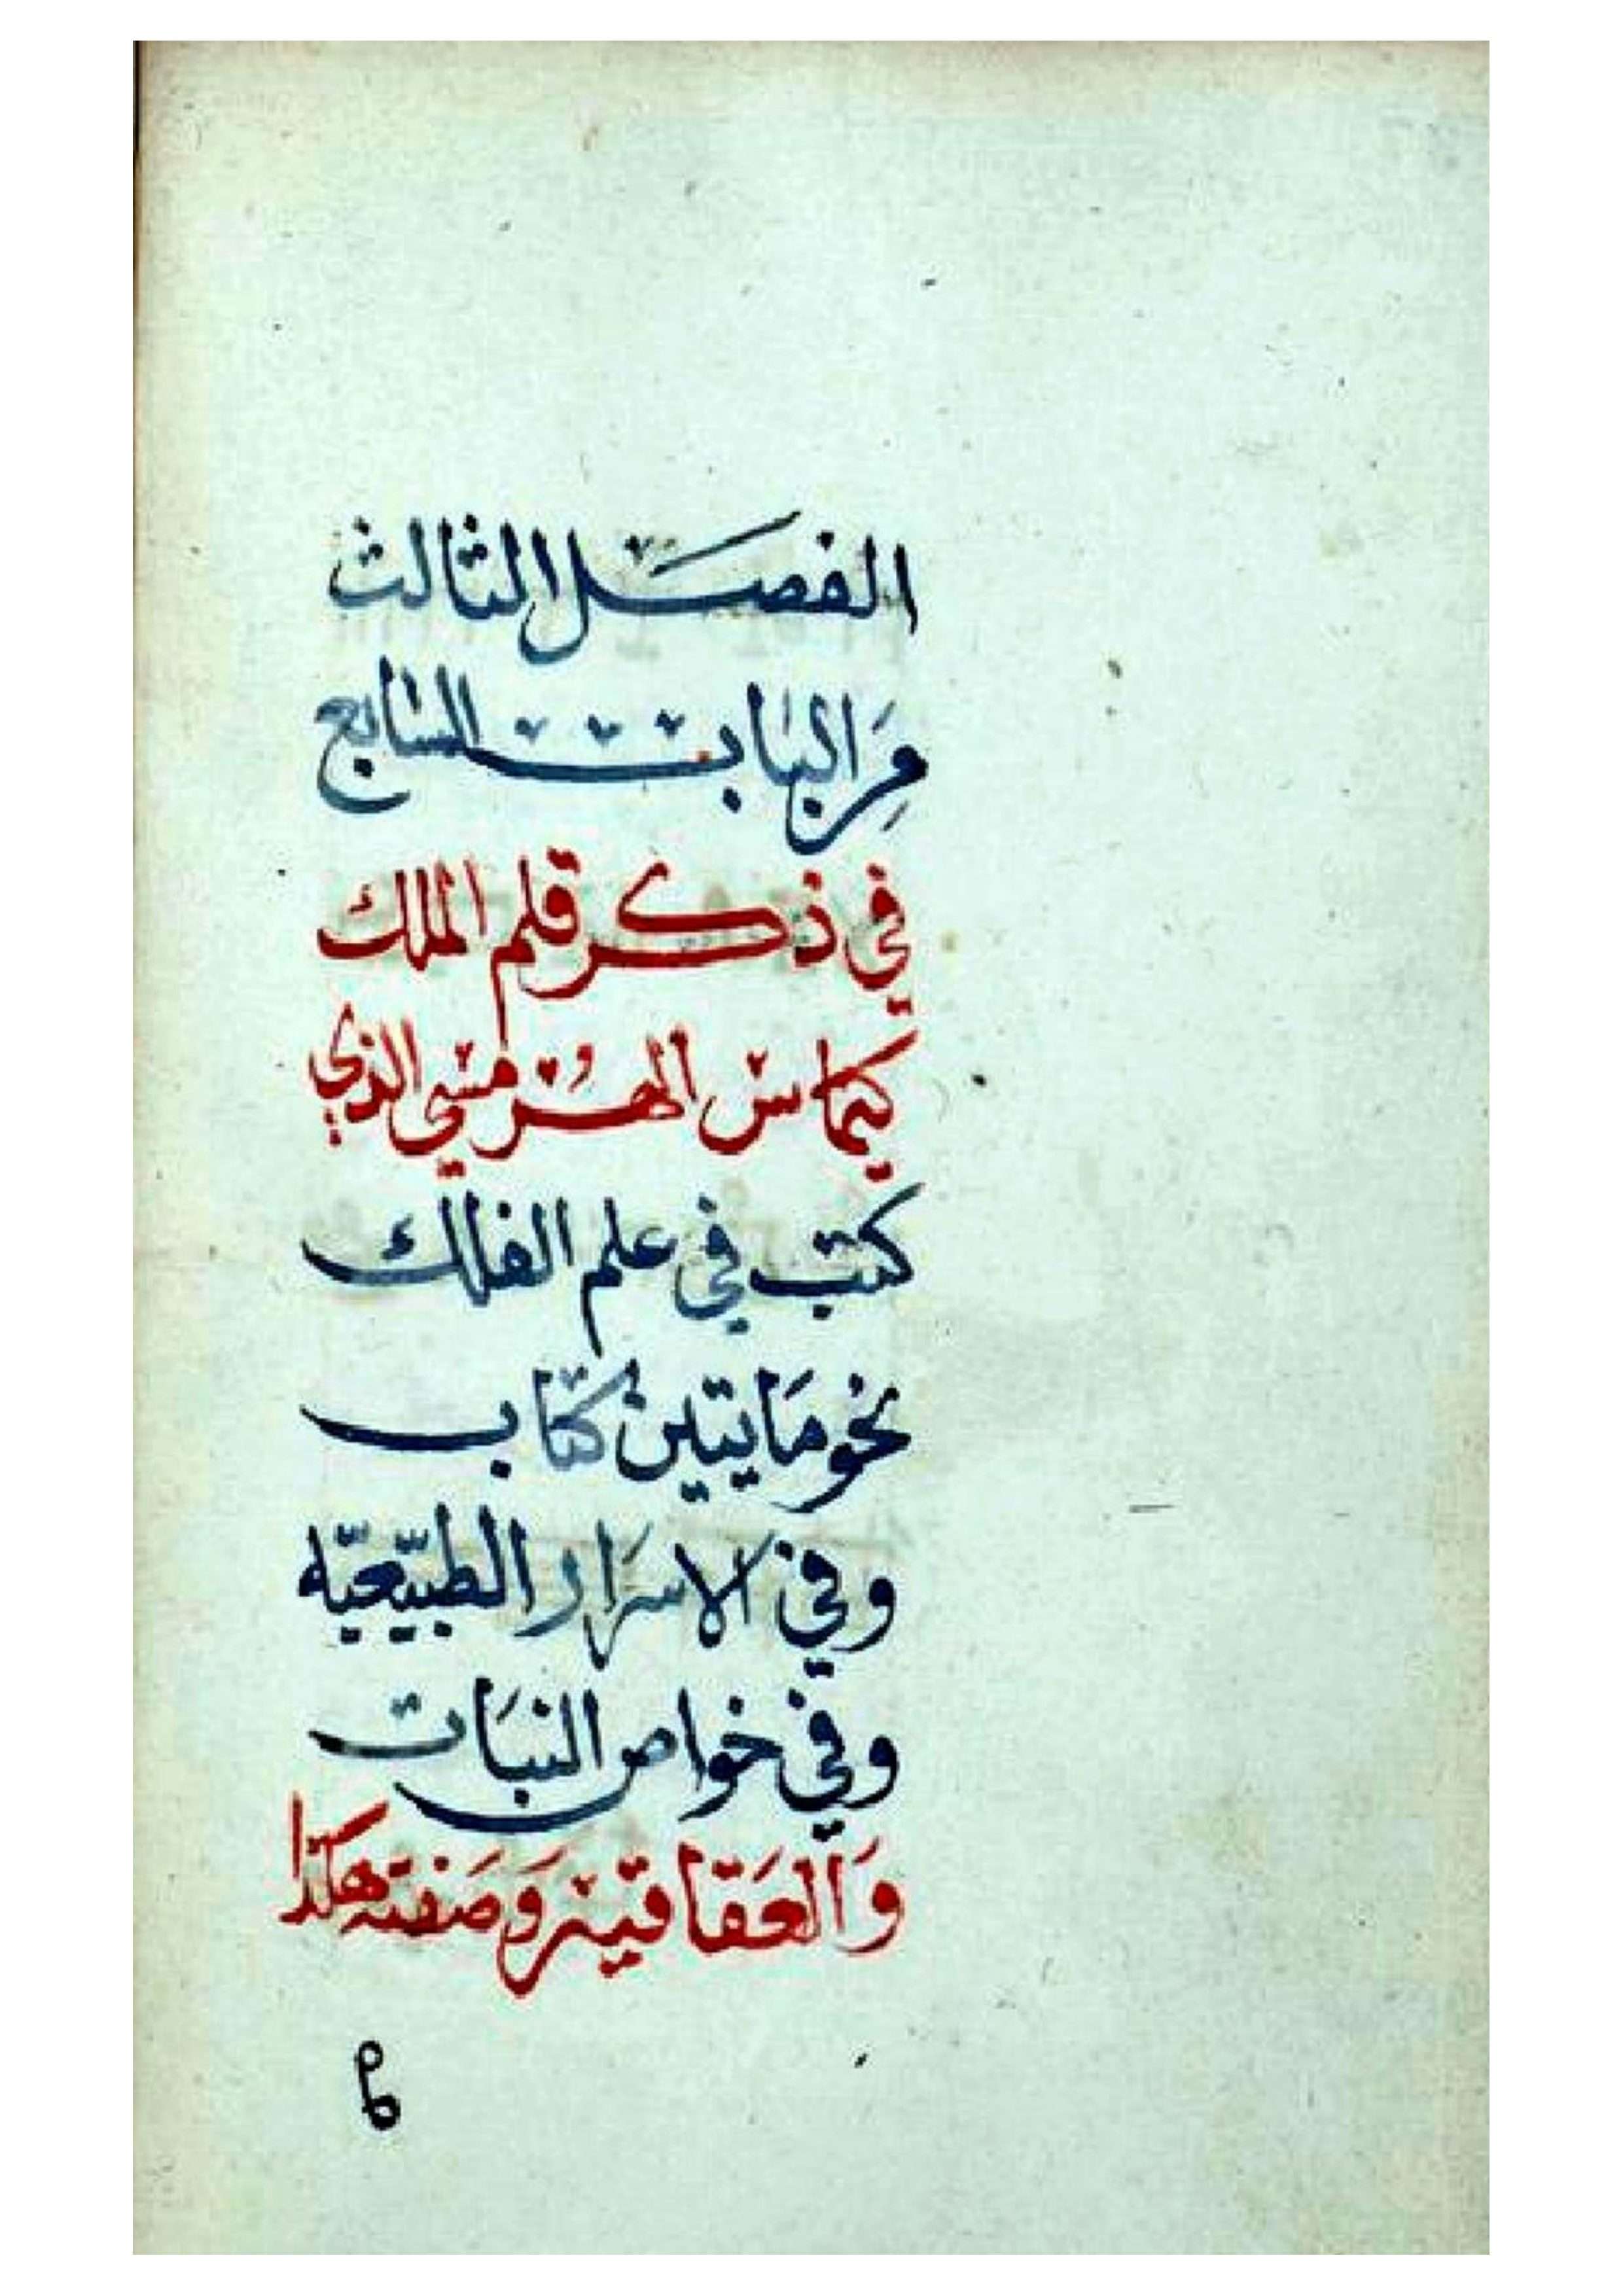 الفصل الثالث
مِنَ البابت السابع
في ذكر قلم الملك
كيماس الهُرمسي الذي
كتب في علم الفلك
نحو مَايتين كتاب
وفي الاسرَار الطبيّعيّه
وفي خواص النبَات
وَالعَقاقير وَصَفته هكذا